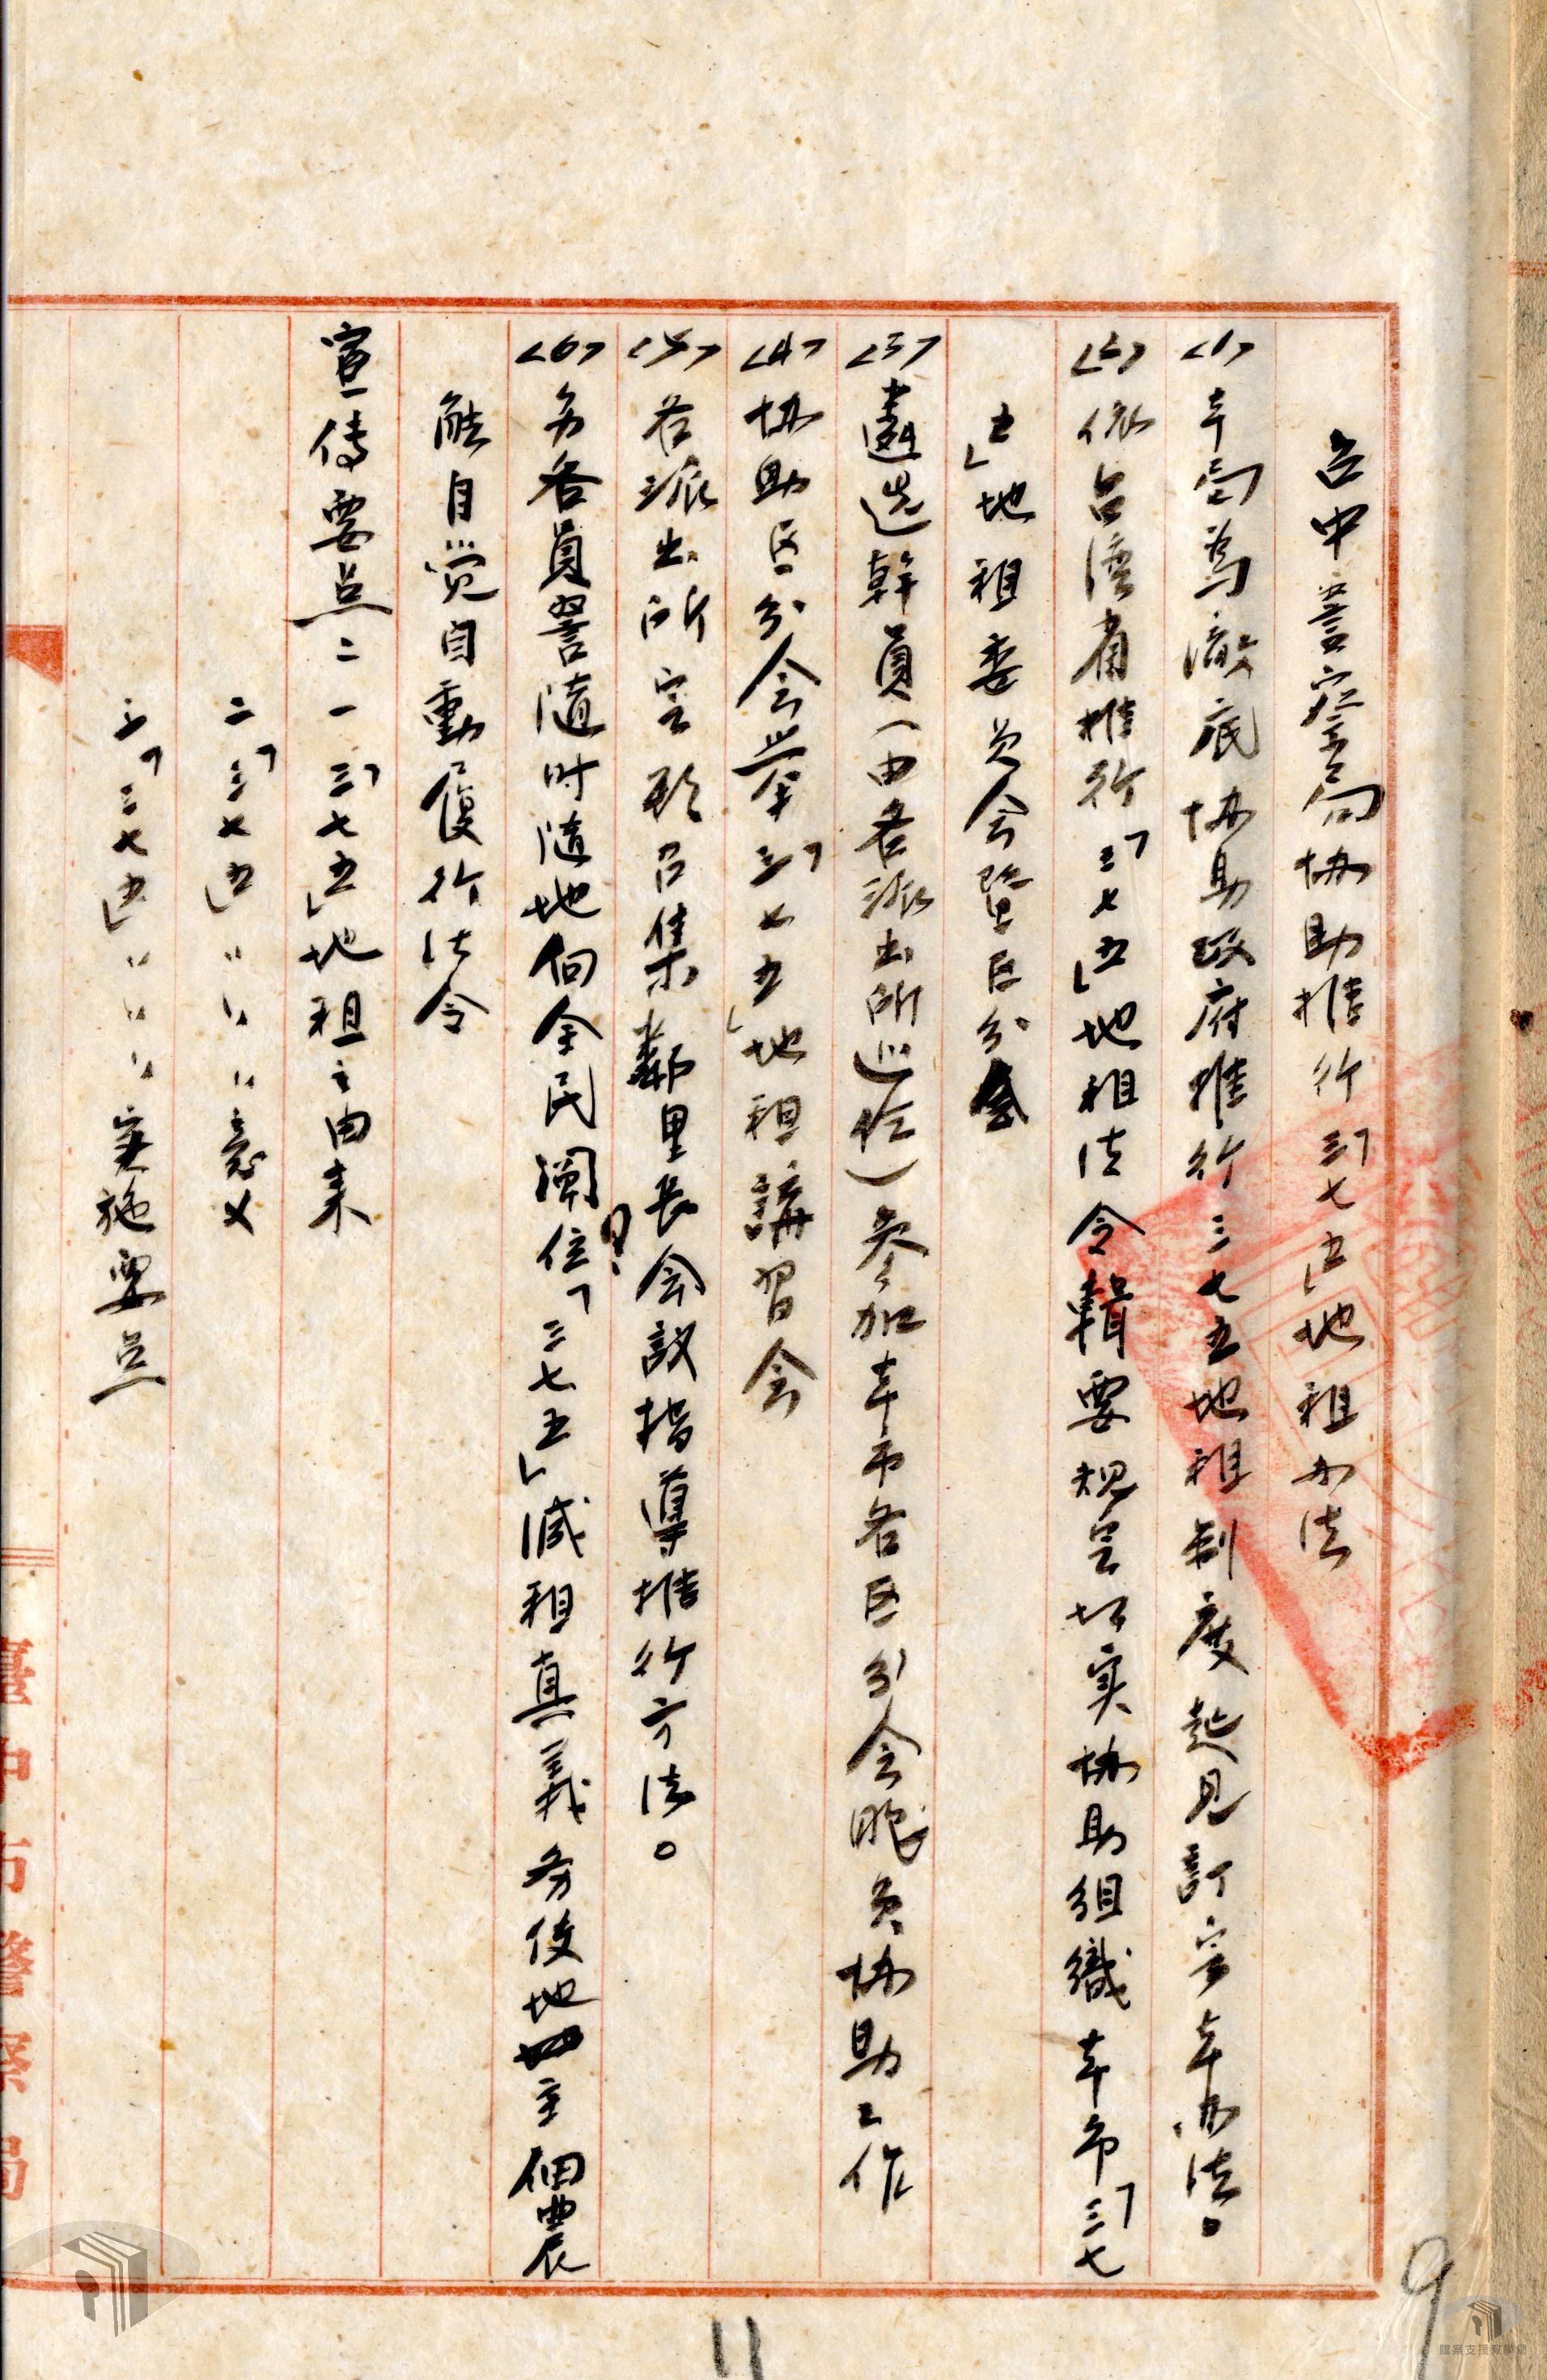 台中警察局協助推行「三七五」地租办法
<1>本局為澈底協助政府推行三七五地租制度起見訂定本办法。
<2>依台湾省推行「三七五」地租法令輯要規定切实協助組織本市「三七
五」地租委员会暨区分会
<3>遴选幹員(由各派出所巡佐)参加本市各区分会服务協助工作
<4>協助区分会举「三七五」地租講習会
<5>各派出所定期召集鄰里長会議指導推行方法。
<6>务各員警隨时隨地向全民闡住「三七五」減租真義务使地主佃農
能自觉自動履行法令
宣傳要点二一「三七五」地租之由来
二「三七五」〃〃〃意义
三「三七五」〃〃〃实施要点
臺中市警察局
9
11
檔案支援教學網